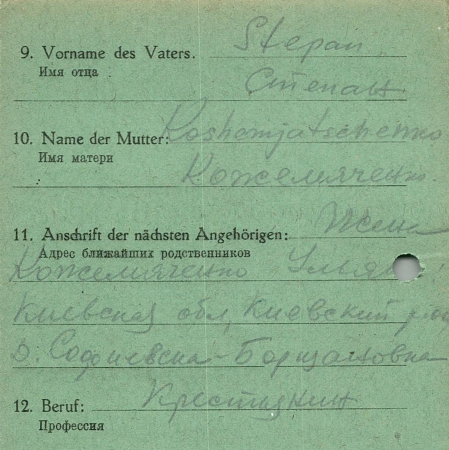 9. Vorname des Vaters. Stepan
Имя отца
Степан
10. Name der Mutter: Koshemjatschenko
Имя матери
Кожемяченко.
11. Anschrift der nächsten Angehörigen: Жена
Адрес ближайших родственников
Кожемяченко Ульяна
Киевская обл, Киевский р-он
д. Софиевска-Борщаговка
12. Beruf: Крестьянин
Профессия